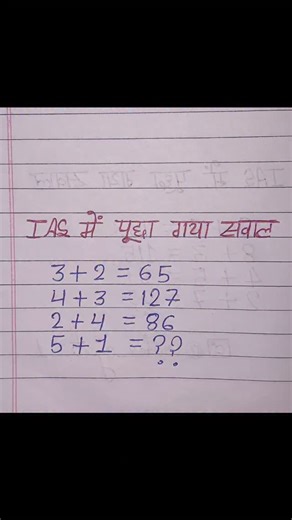 IAS में पूछा गया सवाल
3+2 = 65
4+3 = 127
2+4 = 86
5+1 = ??